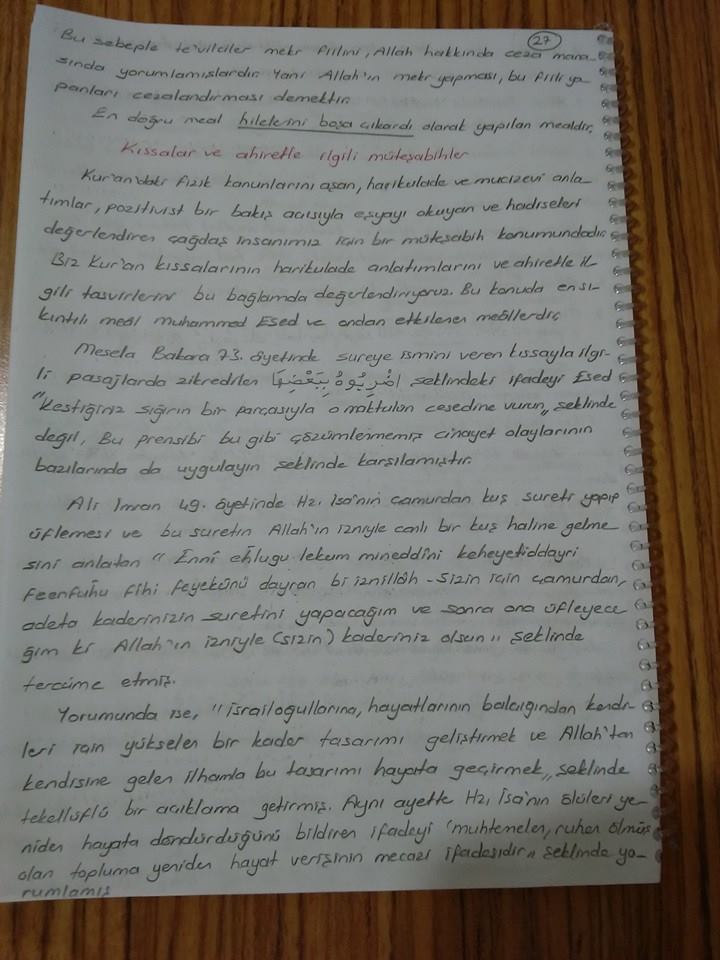 27
Bu sebeple te'vilciler mekr fiilini, Allah hakkında ceza mana-
sında yorumlamışlardır. Yani Allah'ın mekr yapması, bu fiili ya-
panları cezalandırması demektir.
En doğru meal hilelerini boşa çıkardı olarak yapılan mealdir.
Kıssalar ve ahiretle ilgili müteşabihler
Kur'an'daki fizik kanunlarını aşan, harikulade ve mucizevi anla-
tımlar, pozitivist bir bakış açısıyla eşyayı okuyan ve hadiseleri
değerlendiren çağdaş insanımız için bir müteşabih konumundadır.
Biz Kur'an kıssalarının harikulade anlatımlarını ve ahiretle il-
gili tasvirlerini bu bağlamda değerlendiriyoruz. Bu konuda en sı-
kıntılı meâl Muhammed Esed ve ondan etkilenen meâllerdir.
Mesela Bakara 73. âyetinde sureye ismini veren kıssayla ilgi-
li pasajlarda zikredilen اضْرِبُوهُ بِبَعْضِهَا şeklindeki ifadeyi Esed
"kestiğiniz sığırın bir parçasıyla o maktulün cesedine vurun,, şeklinde
değil, Bu prensibi bu gibi çözümlenmemiş cinayet olaylarının
bazılarında da uygulayın şeklinde karşılamıştır.
Ali İmran 49. âyetinde Hz. İsa'nın çamurdan kuş sureti yapıp
üflemesi ve bu suretin Allah'ın izniyle canlı bir kuş haline gelme
sini anlatan " Ennî ehlugu lekum mineddîni keheyetiddayri
feenfuhu fihi feyekûnü dayran bi iznillâh - Sizin için çamurdan,
adeta kaderinizin suretini yapacağım ve sonra ona üfleyece
ğim ki Allah'ın izniyle (sizin) kaderiniz olsun ıı şeklinde
tercüme etmiş.
Yorumunda ise, "İsrailoğullarına, hayatlarının balçığından kendi-
leri için yükselen bir kader tasarımı geliştirmek ve Allah'tan
kendisine gelen ilhamla bu tasarımı hayata geçirmek,, şeklinde
tekellüflü bir açıklama getirmiş. Aynı ayette Hz. İsa'nın ölüleri ye-
niden hayata döndürdüğünü bildiren ifadeyi "muhtemelen, ruhen ölmüş
olan topluma yeniden hayat verişinin mecazi ifadesidir,, şeklinde yo-
rumlamış